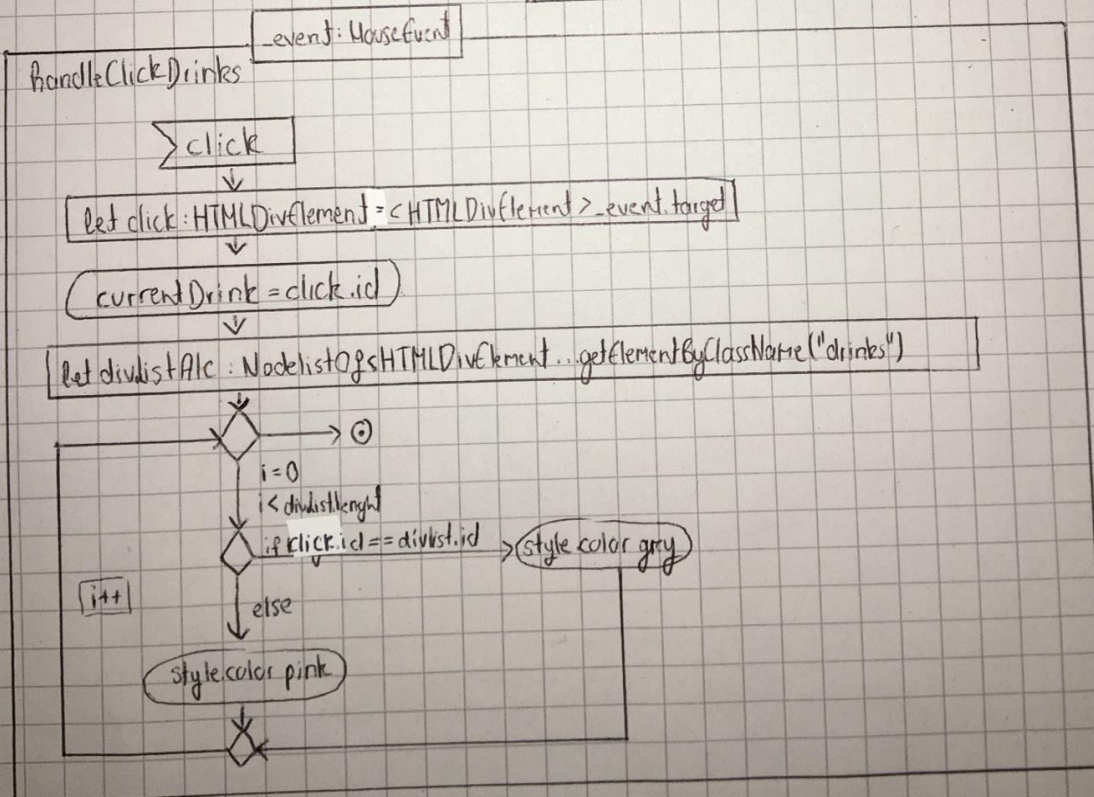 _event: MouseEvent
HandleClickDrinks
click
let click: HTMLDivElement = <HTMLDivElement>_event.target
currentDrink = click.id
let divlistAlc: NodelistOf<HTMLDivElement...getElementByClassName("drinks")
i=0
i< divlist.lenght
if click.id == divlist.id
style.color grey
i++
else
style.color pink